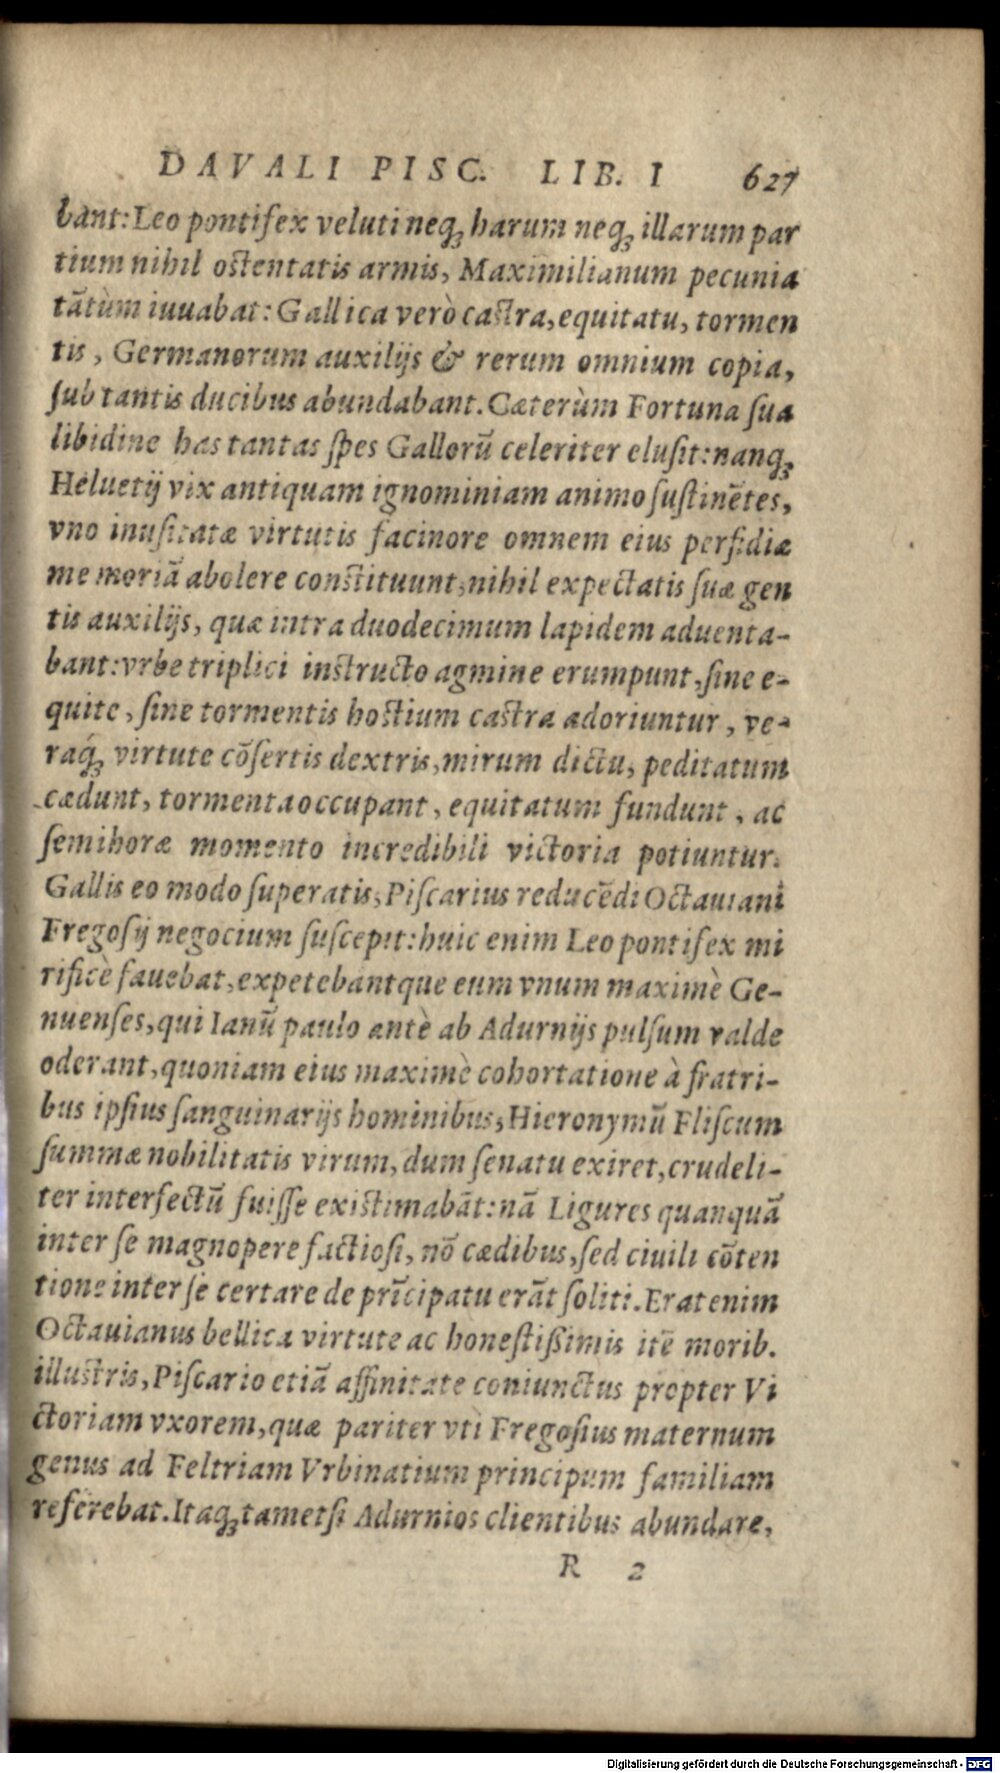 DAVALI PISC. LIB. I 627
bant: Leo pontifex veluti neq; harum neq; illarum par
tium nihil ostentatis armis, Maximilianum pecunia
tãtùm iuuabat: Gallica verò castra, equitatu, tormen
tis, Germanorum auxilijs & rerum omnium copia,
ſub tantis ducibus abundabant. Cæterùm Fortuna ſua
libidine has tantas ſpes Gallorũ celeriter eluſit: nanq;
Heluetij vix antiquam ignominiam animo ſuſtinẽtes,
vno inuſitatæ virtutis facinore omnem eius perfidiæ
memoriã abolere constituunt, nihil expectatis ſuæ gen
tis auxilijs, quæ intra duodecimum lapidem aduenta-
bant: vrbe triplici instructo agmine erumpunt, ſine e-
quite, ſine tormentis hostium castra adoriuntur, ve-
raq́; virtute cõſertis dextris, mirum dictu, peditatum
cædunt, tormenta occupant, equitatum fundunt, ac
ſemihoræ momento incredibili victoria potiuntur.
Gallis eo modo ſuperatis, Piſcarius reducẽdi Octauiani
Fregoſij negocium ſuſcepit: huic enim Leo pontifex mi
rificè fauebat, expetebantque eum vnum maximè Ge-
nuenſes, qui Ianũ paulo antè ab Adurnijs pulſum valde
oderant, quoniam eius maximè cohortatione à fratri-
bus ipſius ſanguinarijs hominibus, Hieronymũ Fliſcum
ſummæ nobilitatis virum, dum ſenatu exiret, crudeli-
ter interfectũ fuiſſe existimabãt: nã Ligures quanquã
inter ſe magnopere factioſi, nõ cædibus, ſed ciuili cõten
tione inter ſe certare de prĩcipatu erãt ſoliti. Erat enim
Octauianus bellica virtute ac honeſtißimis itẽ morib.
illustris, Piſcario etiã affinitate coniunctus propter Vi
ctoriam vxorem, quæ pariter vti Fregoſius maternum
genus ad Feltriam Vrbinatium principum familiam
referebat. Itaq; tametſi Adurnios clientibus abundare,
R 2
Digitalisierung gefördert durch die Deutsche Forschungsgemeinschaft - DFG